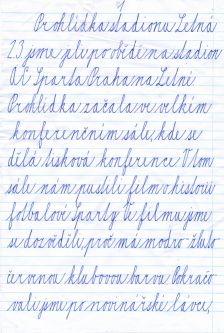 Prohlídka stadionu Letná
23 jsme šli po obědě na stadion
AC Sparta Praha na Letné.
Prohlídka začala ve velkém
konferenčním sále, kde se
dělá tisková konference V tom
sále nám pustili film o historii
fotbalové Sparty Ve filmu jsme
se dozvěděli, proč má modro-žluto
červenou klubovou barvu Pokračo
vali jsme po novinářské lávce,